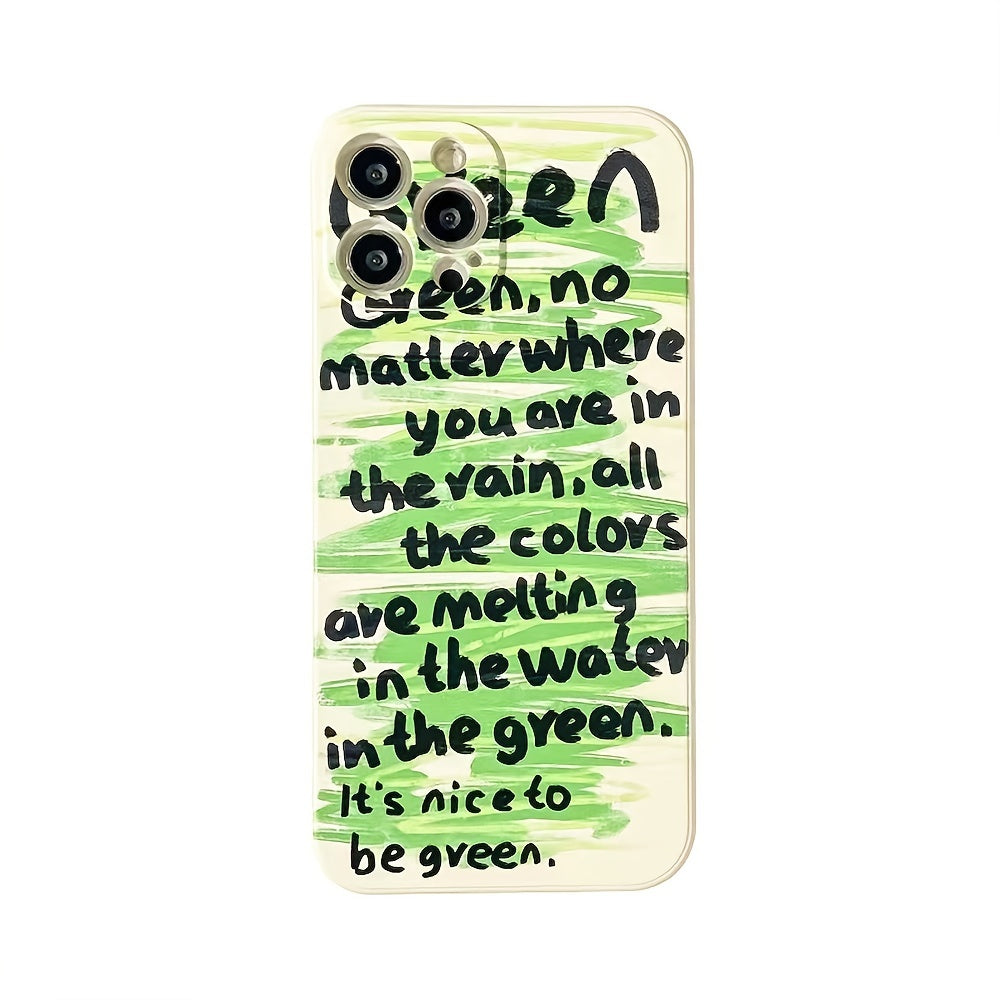 Green
Green, no
matter where
you are in
the rain, all
the colors
are melting
in the water
in the green.
It's nice to
be green.